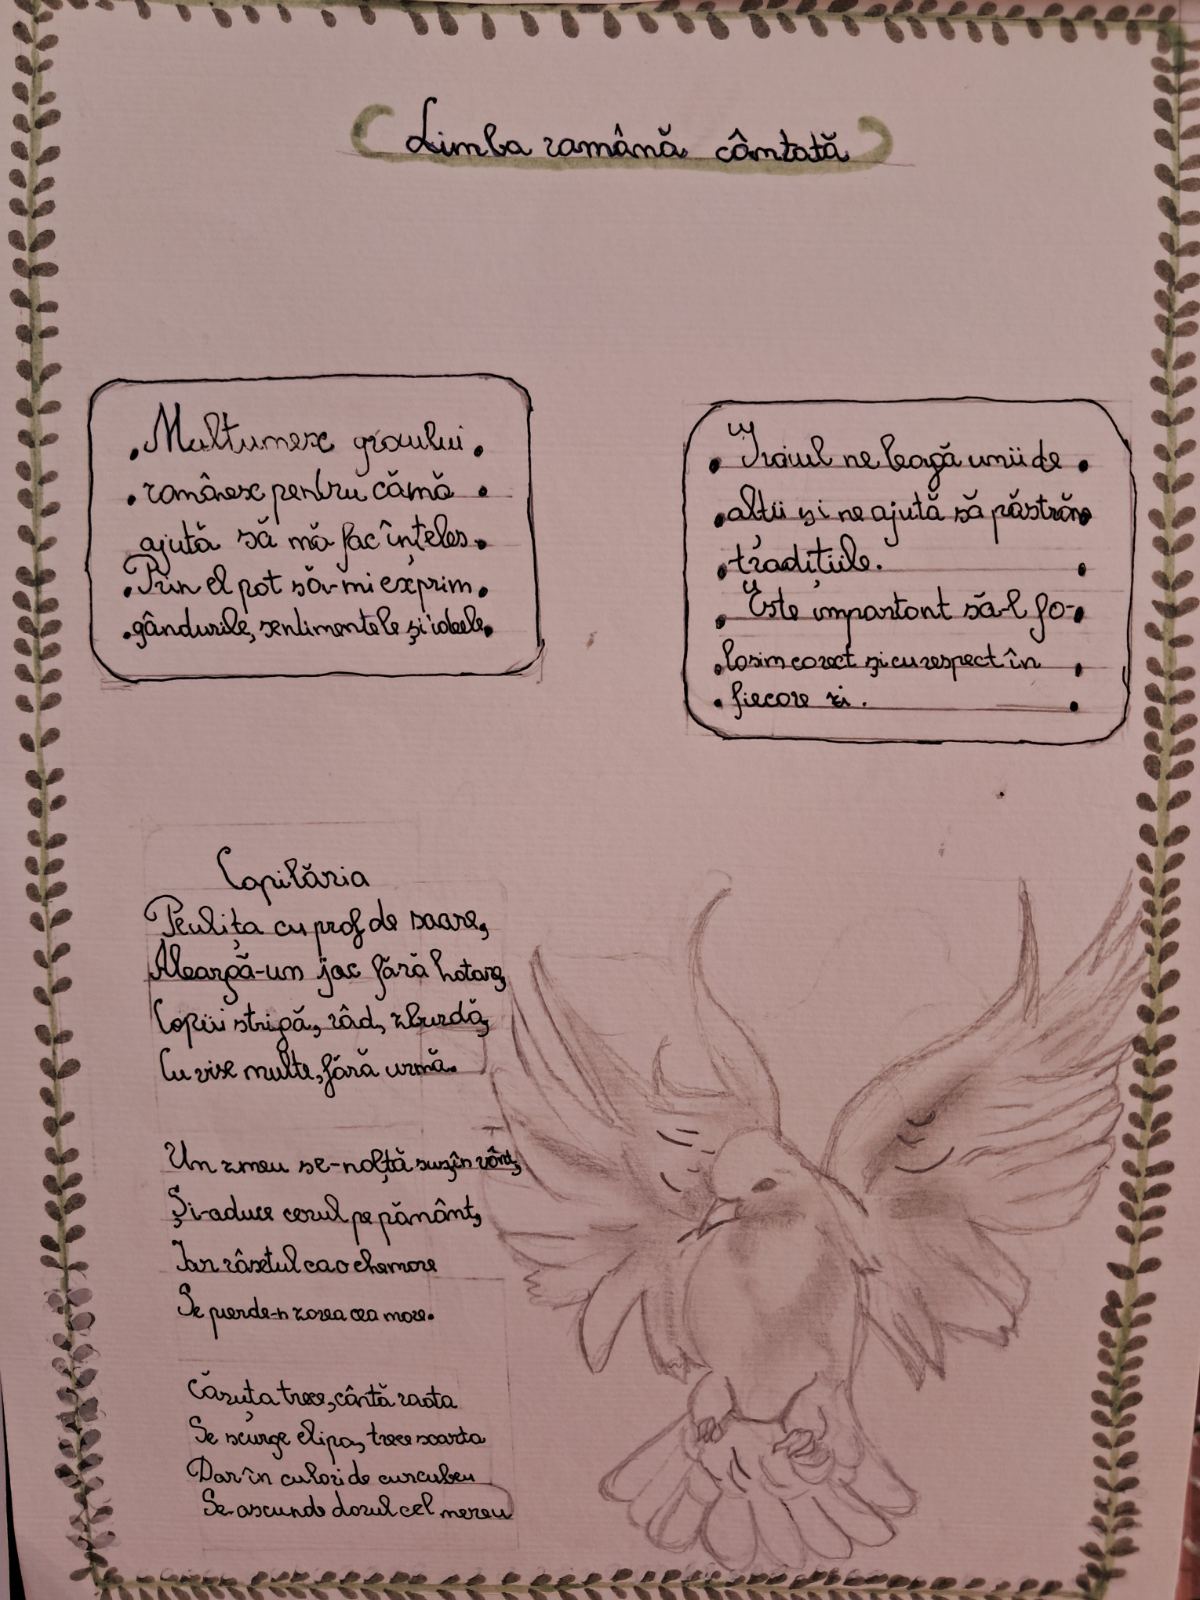 Limba română cântată
Mulțumesc graiului
românesc pentru că mă
ajută să mă fac înțeles.
Prin el pot să-mi exprim
gândurile, sentimentele și ideele.
Graiul ne leagă unii de
alții și ne ajută să păstrăm
tradițiile.
Este important să-l fo-
losim corect și cu respect în
fiecare zi.
Copilăria
Peulița cu praf de soare,
Aleargă-un joc fără hotare,
Copiii strigă, râd, zburdă,
Cu vise multe, fără urmă.
Un zmeu se-nalță sus, în vânt,
Și-aduce cerul pe pământ,
Iar râsetul ca o chemare
Se pierde-n zarea cea mare.
Căruța trece, cântă roata
Se scurge clipa, trece soarta
Dar în culori de curcubeu
Se-ascunde dorul cel mereu